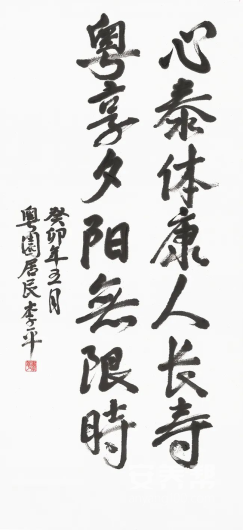 心泰体康人长寿
粤享夕阳無限時
癸卯年五月
粤園居民李平